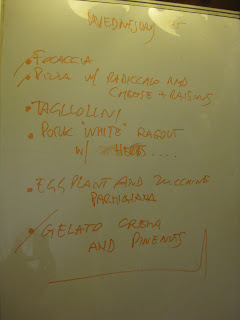 WEDNESDAY 25
• FOCACCIA
• PIZZA W/ RADICCHIO AND
CHEESE + RAISINS
• TAGLIOLINI
• PORK "WHITE" RAGOUT
W/ HERBS ....
• EGGPLANT AND ZUCCHINE
PARMIGIANA
• GELATO CREMA
AND PINENUTS